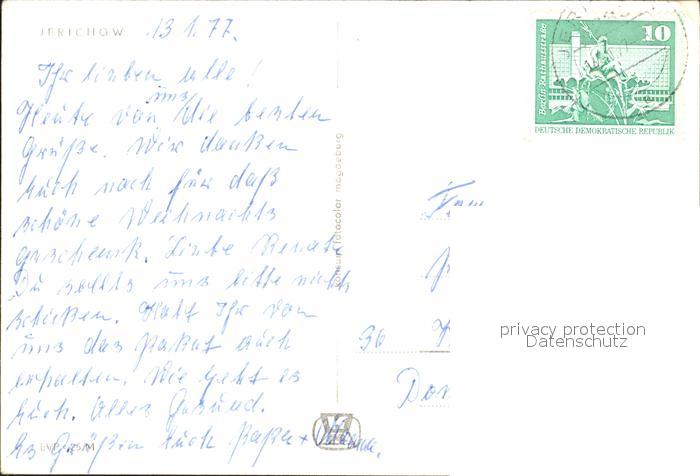 JERICHOW 13.1.77.
Ihr lieben alle!
Heute von uns die besten
Grüße. Wir danken
Euch noch für daß
schöne Weihnachts
geschenk. Liebe Renate
Du sollts uns bitte nichts
schicken. Habt Ihr von
uns das Paket auch
erhalten. Wie geht es
Euch. Alles Gesund.
Es Grüßen Euch
volkskunst fotocolor magdeburg
10
Berlin-Rathausstraße
DEUTSCHE DEMOKRATISCHE REPUBLIK
Fam
36
privacy protection
Datenschutz